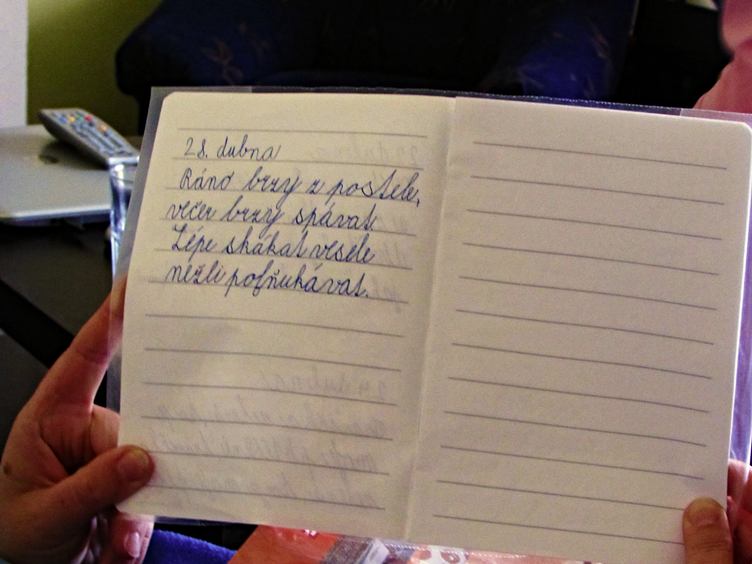 28. dubna
Ráno brzy z postele,
večer brzy spávat.
Lépe skákat vesele
nežli pofňukávat.